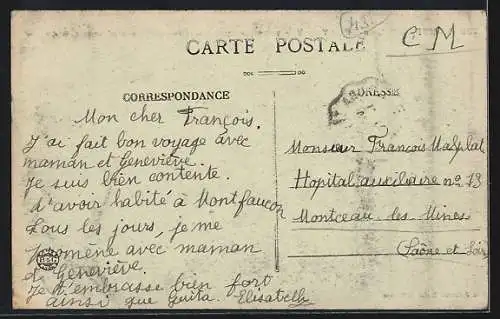 CARTE POSTALE
C M
CORRESPONDANCE
ADRESSE
Mon cher François,
J'ai fait bon voyage avec
maman et Geneviève.
Je suis bien contente
d'avoir habité à Montfaucon
Tous les jours, je me
promène avec maman
et Geneviève.
Je t'embrasse bien fort
ainsi que Guita. Elisabeth
Monsieur François
Hopital auxiliaire n° 13
Montceau les Mines
Saône et Loire